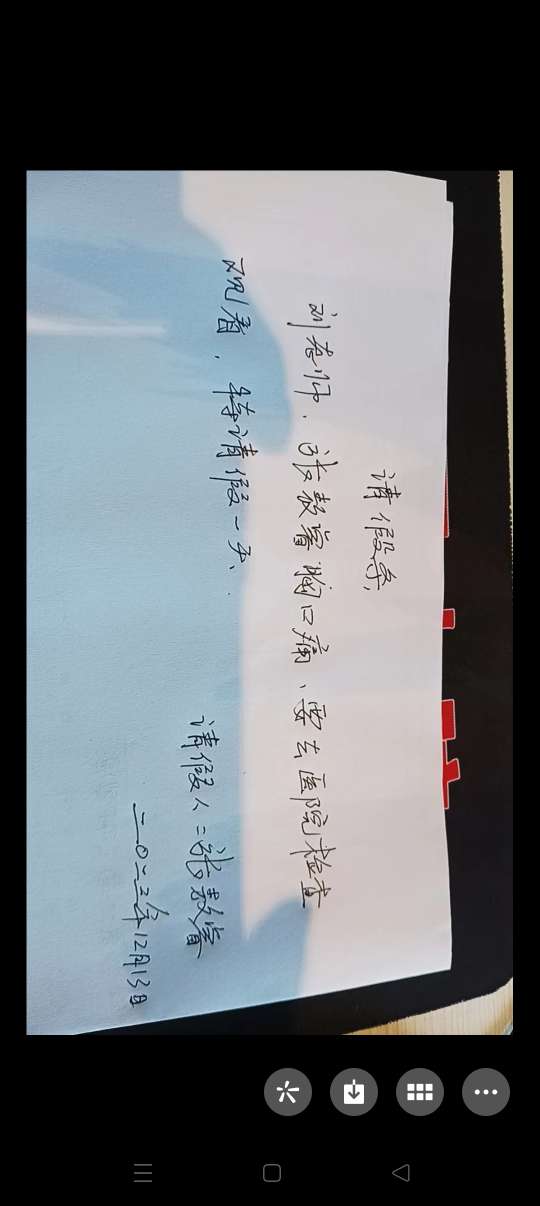 请假条
刘老师，张数睿胸口痛、要去医院检查
观看，特请假一天、
请假人：张数睿
二〇二二年12月13日